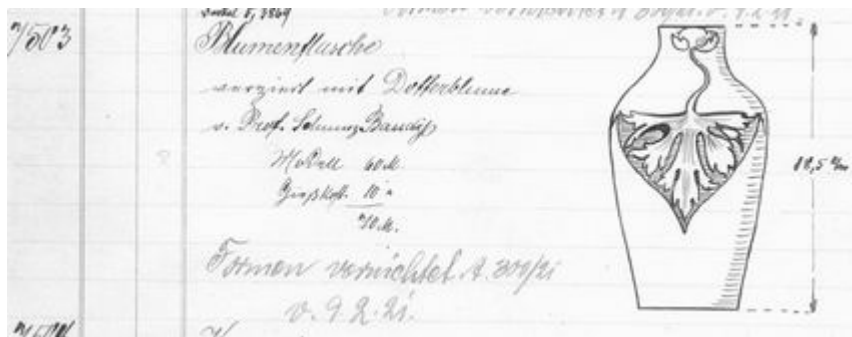 7503
Blumenflasche
verziert mit Dotterblume
v. Prof. Schmuz Baudiß
Modell 60 M.
10 "
70 M.
18,5 cm
Formen vernichtet A. 300/21
v. 9.2.21.